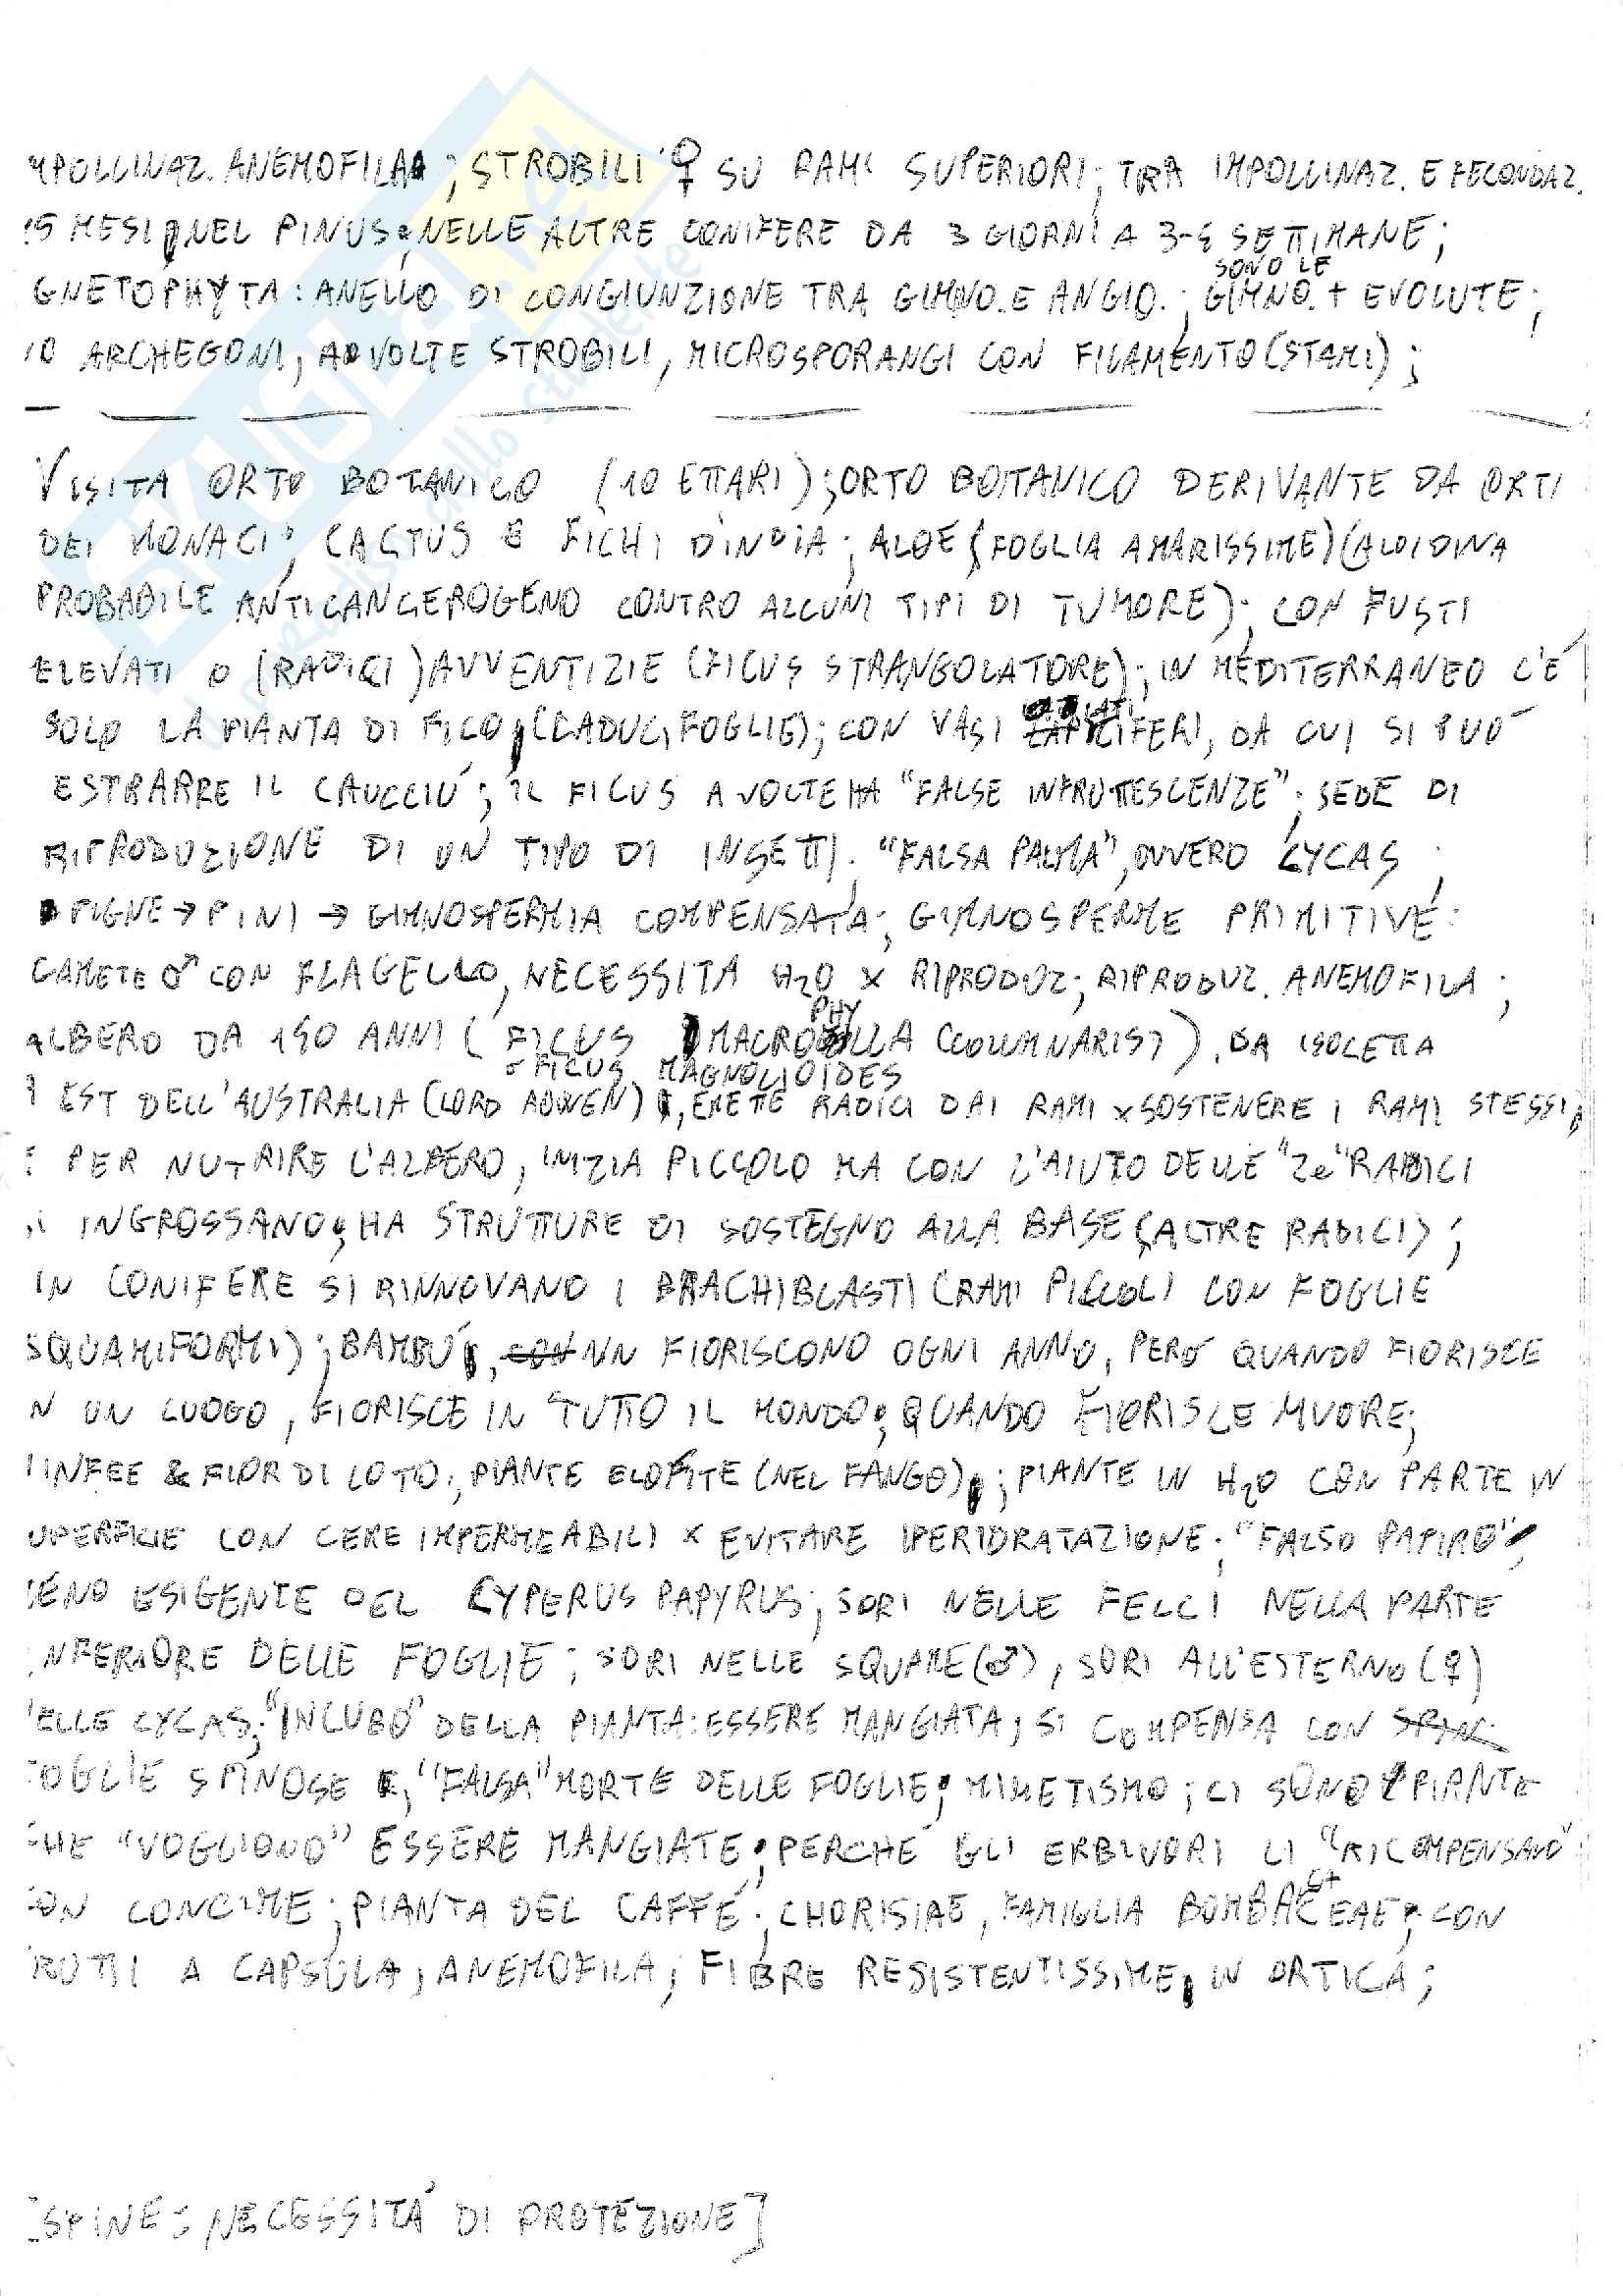 MPOLLINAZ. ANEMOFILA; STROBILI ♀ SU RAMI SUPERIORI; TRA IMPOLLINAZ. E FECONDAZ.
15 MESI NEL PINUS; NELLE ALTRE CONIFERE DA 3 GIORNI A 3-4 SETTIMANE;
GNETOPHYTA: ANELLO DI CONGIUNZIONE TRA GIMNO. E ANGIO.; SONO LE GIMNO. + EVOLUTE;
NO ARCHEGONI, A VOLTE STROBILI, MICROSPORANGI CON FILAMENTO (STAMI);
VISITA ORTO BOTANICO (10 ETTARI); ORTO BOTANICO DERIVANTE DA ORTI
DEI MONACI; CACTUS E FICHI D'INDIA; ALOE (FOGLIA AMARISSIME) (ALOIDINA
PROBABILE ANTICANCEROGENO CONTRO ALCUNI TIPI DI TUMORE); CON FUSTI
ELEVATI O (RADICI) AVVENTIZIE (FICUS STRANGOLATORE); IN MEDITERRANEO C'È
SOLO LA PIANTA DI FICO, (CADUCIFOGLIE); CON VASI LATICIFERI, DA CUI SI PUÒ
ESTRARRE IL CAUCCIÙ; IL FICUS A VOLTE HA "FALSE INFRUTTESCENZE"; SEDE DI
RIPRODUZIONE DI UN TIPO DI INSETTI; "FALSA PALMA", OVVERO CYCAS;
PIGNE → PINI → GIMNOSPERMIA COMPENSATA; GIMNOSPERME PRIMITIVE:
GAMETE ♂ CON FLAGELLO, NECESSITA H2O X RIPRODUZ; RIPRODUZ. ANEMOFILA;
ALBERO DA 150 ANNI (FICUS MACROPHYLLA (COLUMNARIS?), DA ISOLETTA
O FICUS MAGNOLIOIDES
EST DELL'AUSTRALIA (LORD), EMETTE RADICI DAI RAMI X SOSTENERE I RAMI STESSI,
E PER NUTRIRE L'ALBERO, INIZIA PICCOLO MA CON L'AIUTO DELLE "2e" RADICI
SI INGROSSANO; HA STRUTTURE DI SOSTEGNO ALLA BASE (ALTRE RADICI);
IN CONIFERE SI RINNOVANO I BRACHIBLASTI (RAMI PICCOLI CON FOGLIE
SQUAMIFORMI); BAMBÙ, NN FIORISCONO OGNI ANNO, PERÒ QUANDO FIORISCE
N UN LUOGO, FIORISCE IN TUTTO IL MONDO; QUANDO FIORISCE MUORE;
NINFEE & FIOR DI LOTO; PIANTE ELOFITE (NEL FANGO); PIANTE IN H2O CON PARTE IN
UPERFICIE CON CERE IMPERMEABILI X EVITARE IPERIDRATAZIONE; "FALSO PAPIRO",
MENO ESIGENTE DEL CYPERUS PAPYRUS; SORI NELLE FELCI NELLA PARTE
INFERIORE DELLE FOGLIE; SORI NELLE SQUAME (♂), SORI ALL'ESTERNO (♀)
NELLE CYCAS; "INCUBO" DELLA PIANTA: ESSERE MANGIATA; SI COMPENSA CON
FOGLIE SPINOSE, "FALSA" MORTE DELLE FOGLIE; MIMETISMO; CI SONO PIANTE
CHE "VOGLIONO" ESSERE MANGIATE; PERCHÉ GLI ERBIVORI LI "RICOMPENSANO"
CON CONCIME; PIANTA DEL CAFFÈ; CHORISIAE, FAMIGLIA BOMBACEAE; CON
FRUTTI A CAPSULA; ANEMOFILA; FIBRE RESISTENTISSIME, IN ORTICA;
[SPINE: NECESSITÀ DI PROTEZIONE]